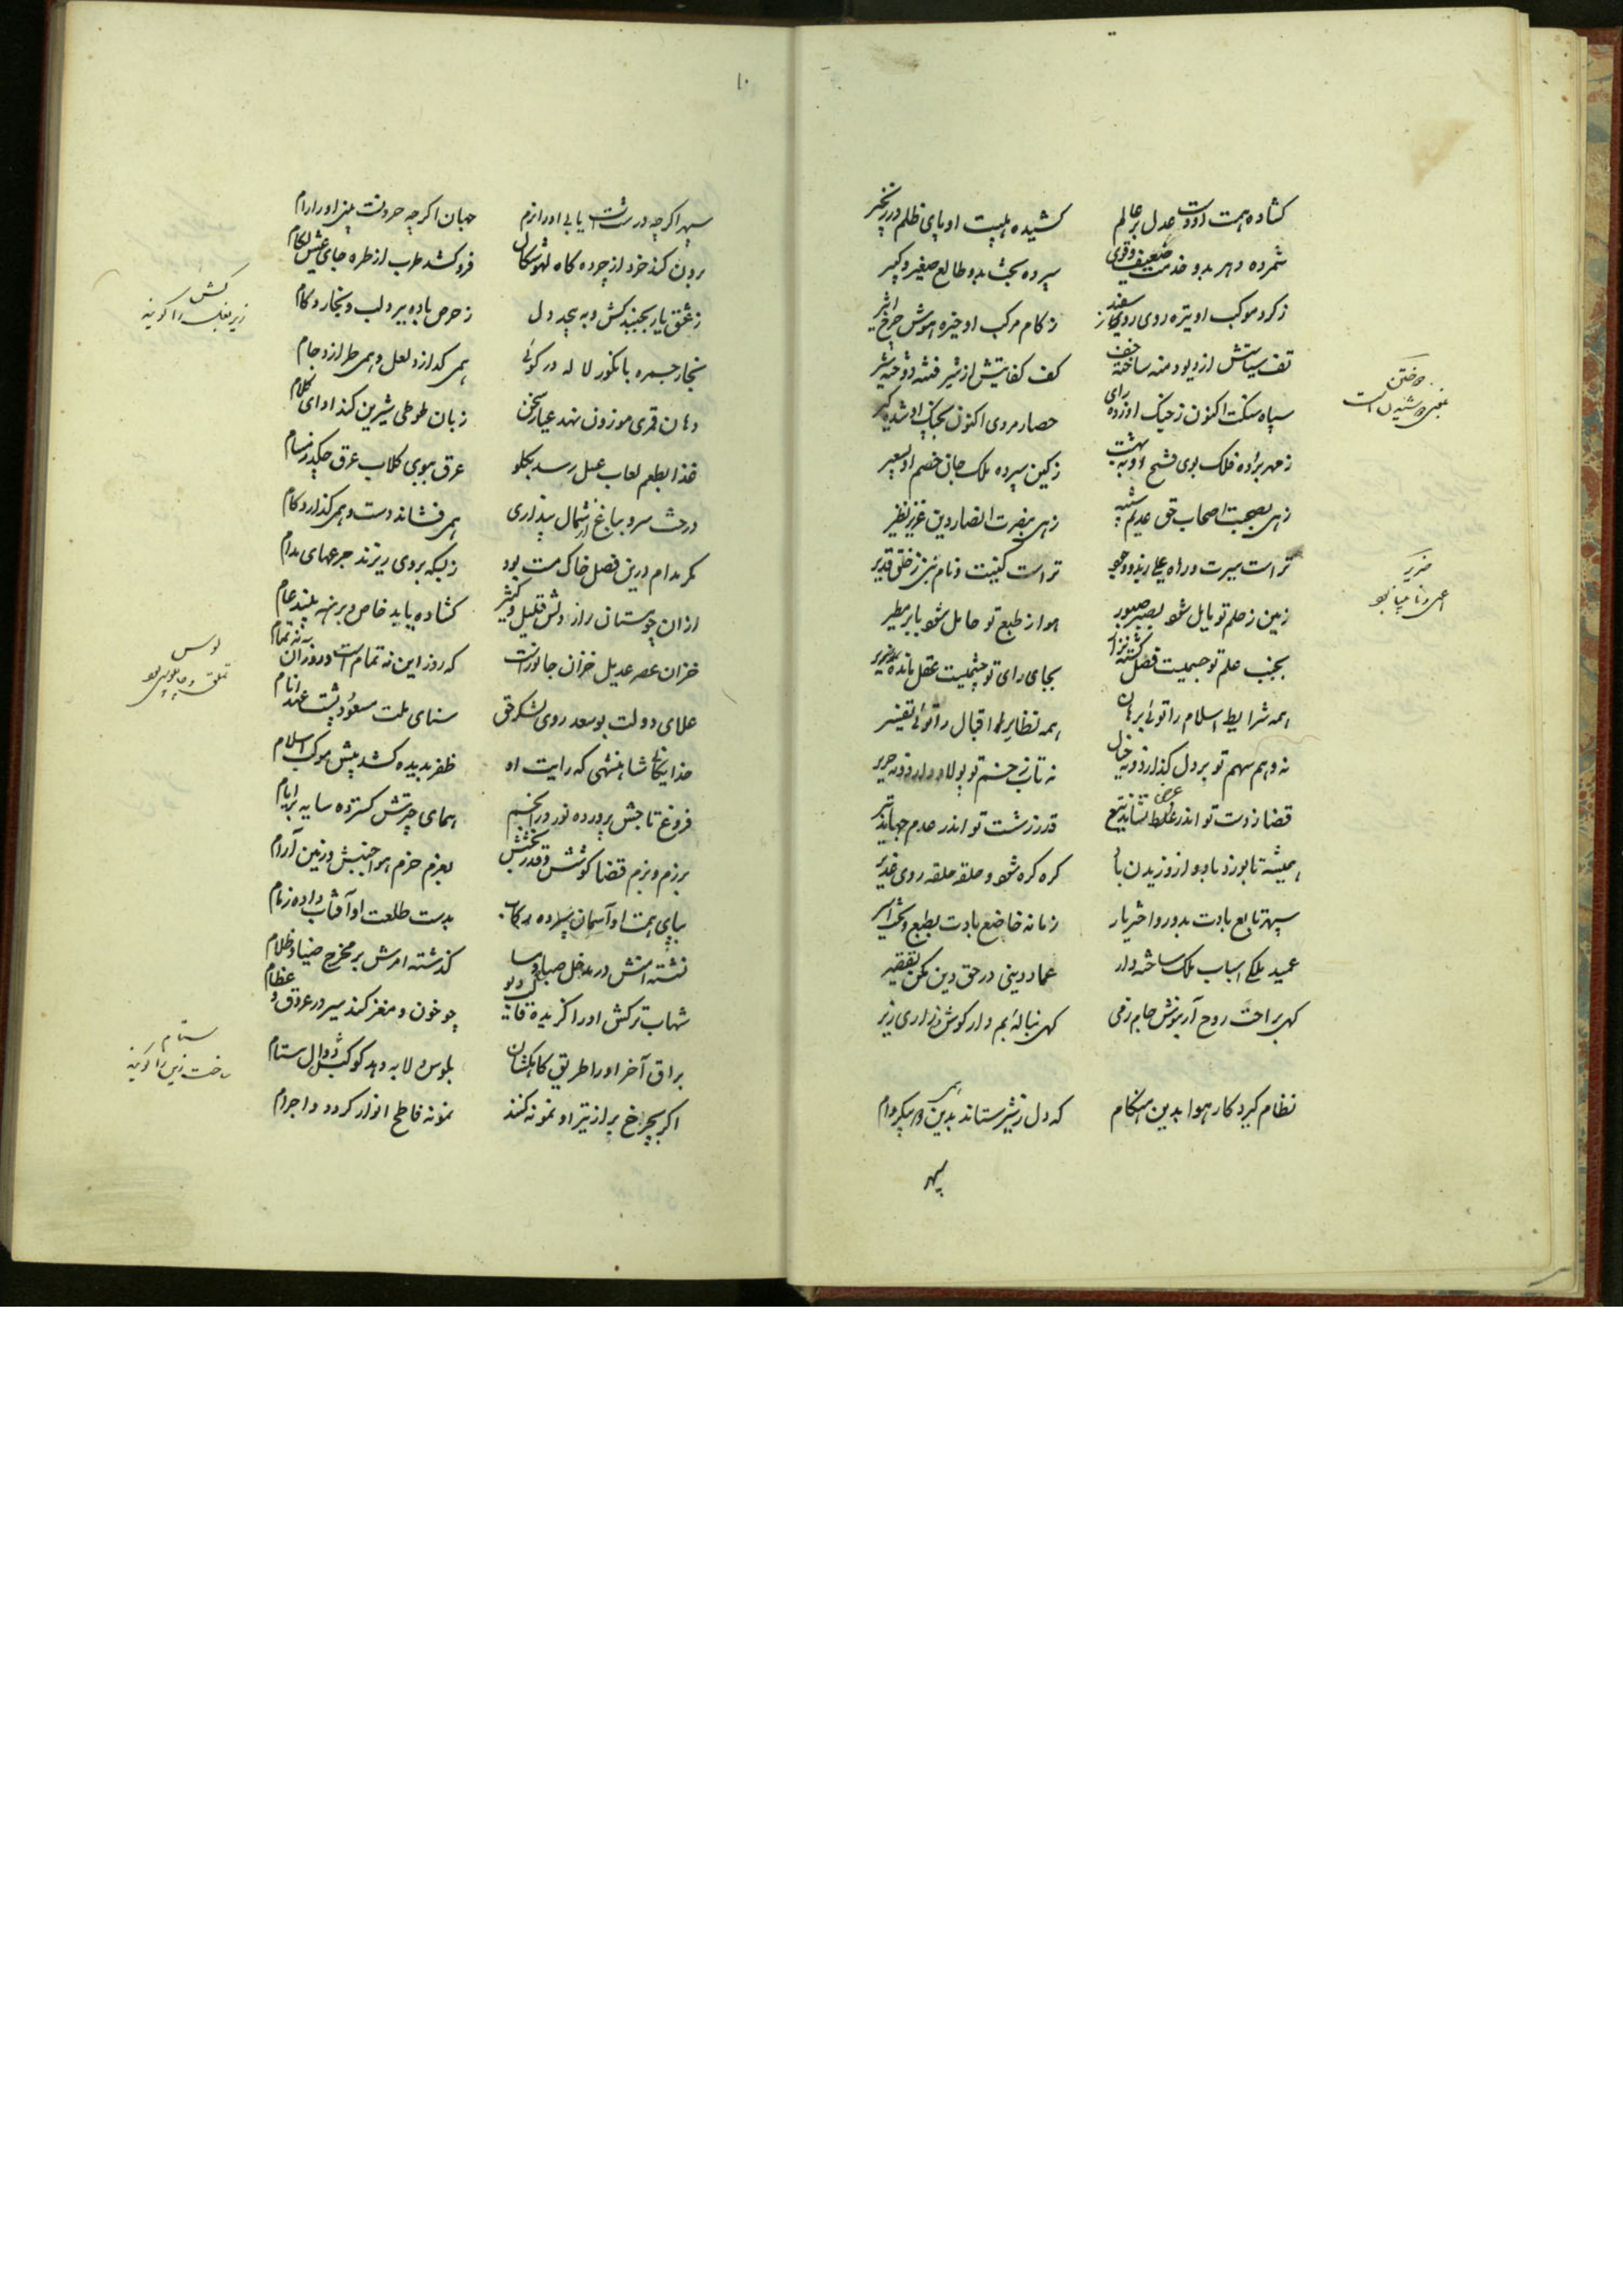 کشاده همت او دست عدل بر عالم کشیده هیبت او پای ظلم در زنجیر
شمرده دهر بدو خدمت ضعیف و قوی سپرده بخت بدو طالع صغیر و کبیر
ز کرد موکب او تیره روی روز سفید ز کام مرکب او خیره هوش چرخ اثیر
تف سیاستش از دیو و دمنه ساخته کف کفایتش از شیر فتنه دوخته شیر
دوختن
سپاه سکت اکنون ز جنک او زده رای حصار مروی اکنون بجنک او شده کیر
ز مهر بزاده فلک بوی فتح او به بهشت ز کین سپرده ملک جان خصم او بسعیر
زهی بصحبت اصحاب حق عدیم شبیه زهی بنصرت انصار دین عزیز نظیر
تراست سیرت و راه تراست کنیت و نام نبی ز خلق قدیر
ضریر
زمین ز حلم تو مایل شود بصبر صبور هوا ز طبع تو حامل شود بابر مطیر
اعمی و نابینا بود
بجنب حلم تو جسمیت فضل کشته نزار بجای رای تو چشمیست عقل مانده ضریر
همه شرایط اسلام را توئی برهان همه نظایر اقبال را توئی تفسیر
نه وهم سهم تو بر دل کذارد و نه خیال نه تاب خشم تو پولاد دارد و نه حریر
قضا ز دست تو اندر غلط نشاند تیغ قدر ز شست تو اندر عدم جهاند تیر
همیشه تا بوزد باد و از وزیدن باد کره کره شود و حلقه حلقه روی غدیر
سپهر تابع بادت بدور و اختر یار زمانه خاضع بادت بطبع و بخت اسیر
عمید ملکی اسباب ملک ساخته دار عماد دینی در حق دین مکن تقصیر
کهی براحت روح آر نوش جام ز می کهی بناله بم دار کوش و زاری زیر
نظام کیرد کار هوا بدین هنکام که دل ز شیر ستاند همی بدین در و دام
سپهر
۱۰
سپهر اکرچه درشت یابی او را نرم جهان اکرچه حرونست بینی او را رام
برون کند خرد از چرده کاه لهو شکال فرو کشد طرب از طره جای عیش لکام
ز عشق یار بجنبد کش و بپیچد دل ز حرص باده بپرد لب و بخارد کام
کش
زیر بغل را کویند
بخار جمره بانکور لاله در کوئی همی کدازد لعل و همی طرازد جام
دهان قمری موزون نهد عیار سخن زبان طوطی شیرین کند ادای کلام
غذا بطعم لعاب عسل رسد بکلو عرق ببوی کلاب عرق چکد ز مسام
درخت سرو بباغ از شمال پنداری همی فشاند دست و همی کذارد کام
مکر مدام درین فصل خاک مست بود ز بسکه بر وی ریزند جرعهای مدام
ازان چو مستان راز دلش قلیل و کثیر کشاده یابد خاص و برهنه بیند عام
خزان عصر عدیل خزان جانورست که روز این نه تمام است و روز آن نه تمام
لوس
تملق و چاپلوسی بود
علای دولت بوسعد روی لشکر حق سنای ملت مسعود پشت عهد انام
خدایکان شاهنشهی که رایت او ظفر بدیده کشد پیش موکب اسلام
فروغ تاجش پرورده نور در انجم همای چترش کسترده سایه بر ایام
برزم و بزم قضا کوشش و قدر بخشش بعزم و حزم هوا جنبش و زمین آرام
بپای همت او آسمان سپرده رکاب بدست طلعت او آفتاب داده زمام
نشسته امنش در مدخل صبا و مسا کذشته امرش بر مخرج ضیا و ظلام
شهاب ترکش او را کزیده چو خون و مغز کند سیر در عروق و عظام
براق آخر او را طریق کاهکشان بلوس و لابه دهد کوکب دوال ستام
ستام
ساخت زین را کویند
اکر بچرخ بر از تیر او نمونه کنند نمونه قاطع انوار کردد و اجرام